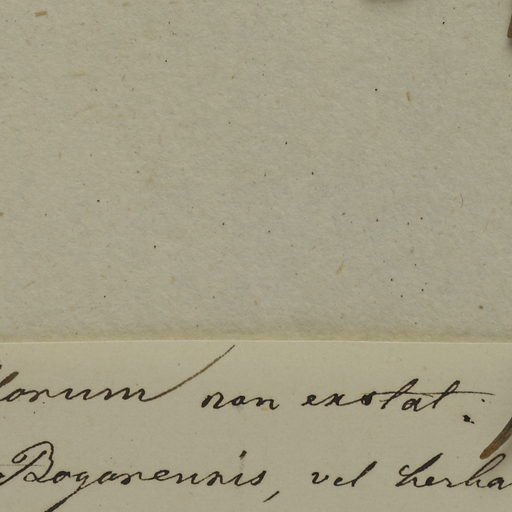 non exstat.
Bogorensis, vel herba